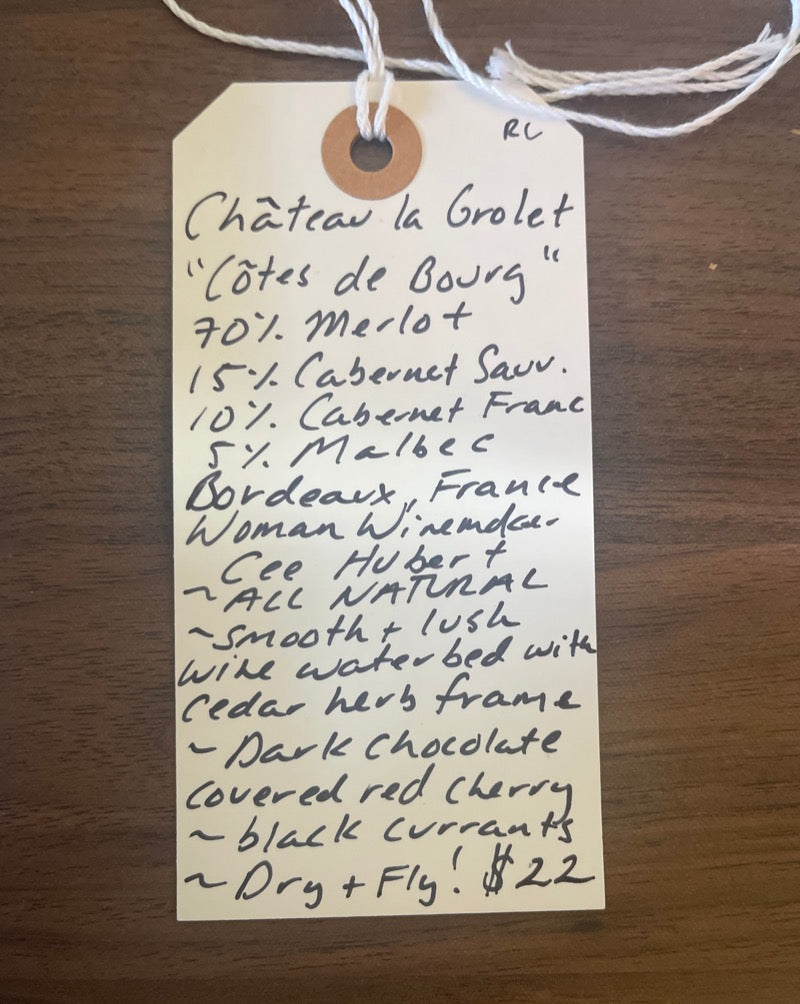 RC
Château la Grolet
"Côtes de Bourg"
70% Merlot
15% Cabernet Sauv.
10% Cabernet Franc
5% Malbec
Bordeaux, France
Woman Winemaker
Cee Hubert
~ALL NATURAL
~smooth + lush
wine waterbed with
cedar herb frame
~ Dark Chocolate
covered red cherry
~ black currants
~ Dry + Fly! $22